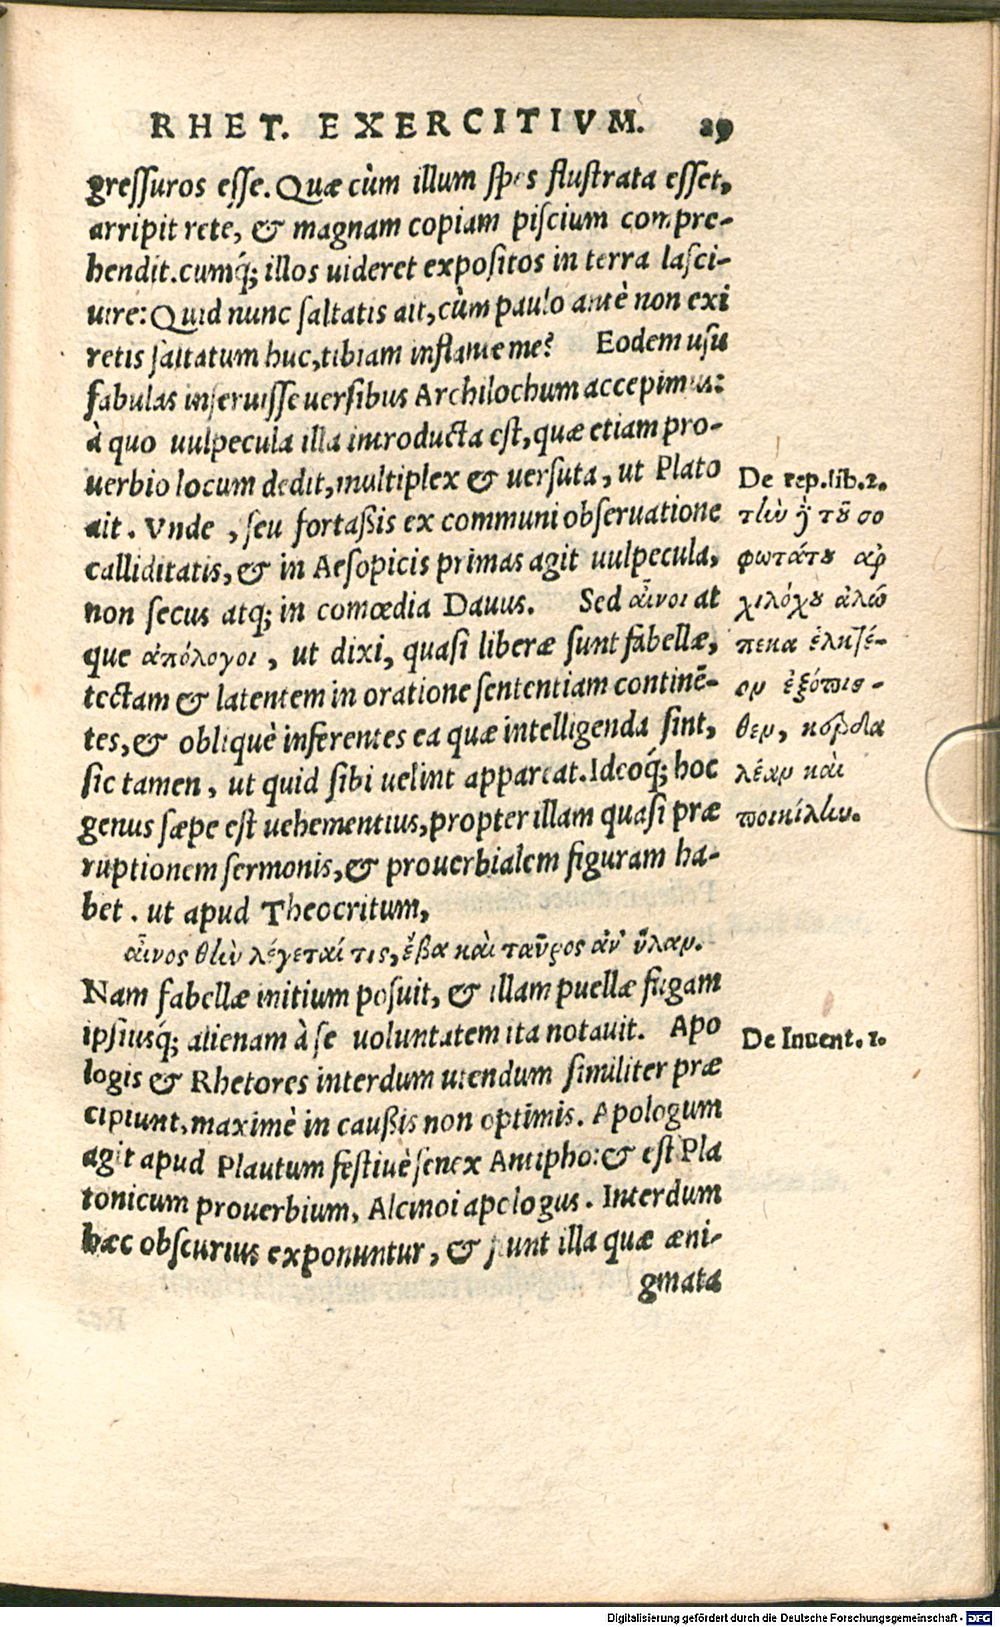 RHET. EXERCITIVM. 29
gressuros esse. Quæ cùm illum spes flustrata esset,
arripit rete, & magnam copiam piscium compre-
hendit. cumq́; illos uideret expositos in terra lasci-
uire: Quid nunc saltatis ait, cùm paulo antè non exi
retis saltatum huc, tibiam inflante me? Eodem usu
fabulas inseruisse uersibus Archilochum accepimus:
à quo uulpecula illa introducta est, quæ etiam pro-
uerbio locum dedit, multiplex & uersuta, ut Plato
ait. Vnde, seu fortaßis ex communi obseruatione
calliditatis, & in Aesopicis primas agit uulpecula,
non secus atq; in comœdia Dauus. Sed αἶνοι at
que ἀπόλογοι, ut dixi, quasi liberæ sunt fabellæ,
tectam & latentem in oratione sententiam continē-
tes, & obliquè inferentes ea quæ intelligenda sint,
sic tamen, ut quid sibi uelint appareat. Ideoq́; hoc
genus sæpe est uehementius, propter illam quasi præ
ruptionem sermonis, & prouerbialem figuram ha-
bet. ut apud Theocritum,
αἶνος θὴν λέγεταί τις, ἔβα καὶ ταῦρος ἀν' ὕλαν.
Nam fabellæ initium posuit, & illam puellæ fugam
ipsiusq́; alienam à se uoluntatem ita notauit. Apo
logis & Rhetores interdum utendum similiter præ
cipiunt, maximè in caußis non optimis. Apologum
agit apud Plautum festiuè senex Antipho: & est Pla
tonicum prouerbium, Alcinoi apologus. Interdum
hæc obscurius exponuntur, & sunt illa quæ æni-
gmata
De rep. lib. 2.
τὴν ἢ τοῦ σο
φωτάτου ἀρ
χιλόχου ἀλώ
πεκα ἑλκτέ-
ον ἐξόπις-
θεν, κερδα
λέαν καὶ
ποικίλην.
De Inuent. 1.
Digitalisierung gefördert durch die Deutsche Forschungsgemeinschaft - DFG